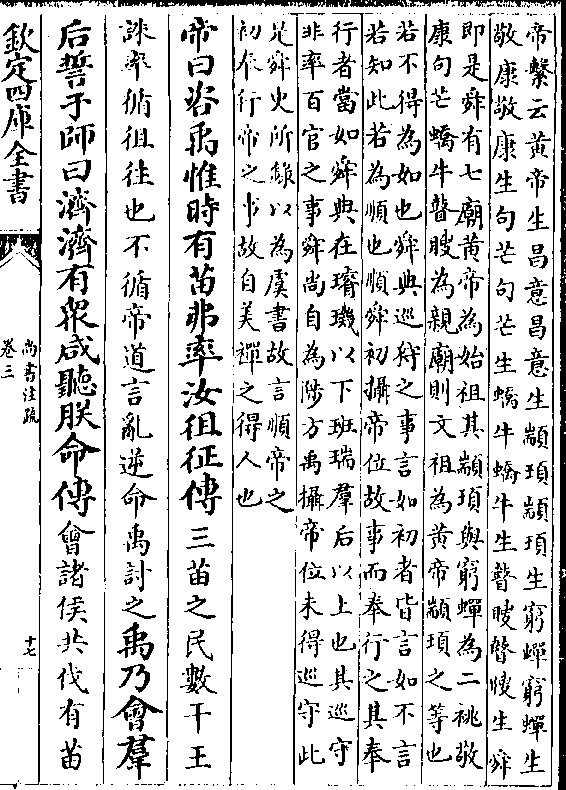 帝繫云黃帝生昌意昌意生顓頊顓頊生窮蟬窮蟬生
敬康敬康生句芒句芒生蟜牛蟜牛生瞽瞍瞽瞍生舜
即是舜有七廟黃帝為始祖其顓頊與窮蟬為二祧敬
康句芒蟜牛瞽瞍為親廟則文祖為黃帝顓頊之等也
若不得為如也舜典巡狩之事言如初者皆言如不言
若知此若為順也順舜初攝帝位故事而奉行之其奉
行者當如舜典在璿璣以下班瑞羣后以上也其巡守
非率百官之事舜尚自為陟方禹攝帝位未得巡守此
是舜史所録以為虞書故言順帝之
初奉行帝之事故自美禪之得人也
帝曰咨禹惟時有苗弗率汝徂征傳三苗之民數干王
誅率循徂往也不循帝道言亂逆命禹討之禹乃會羣
后誓于師曰濟濟有衆咸聽朕命傳會諸侯共伐有苗
欽定四庫全書
尚書注疏
卷三
十七